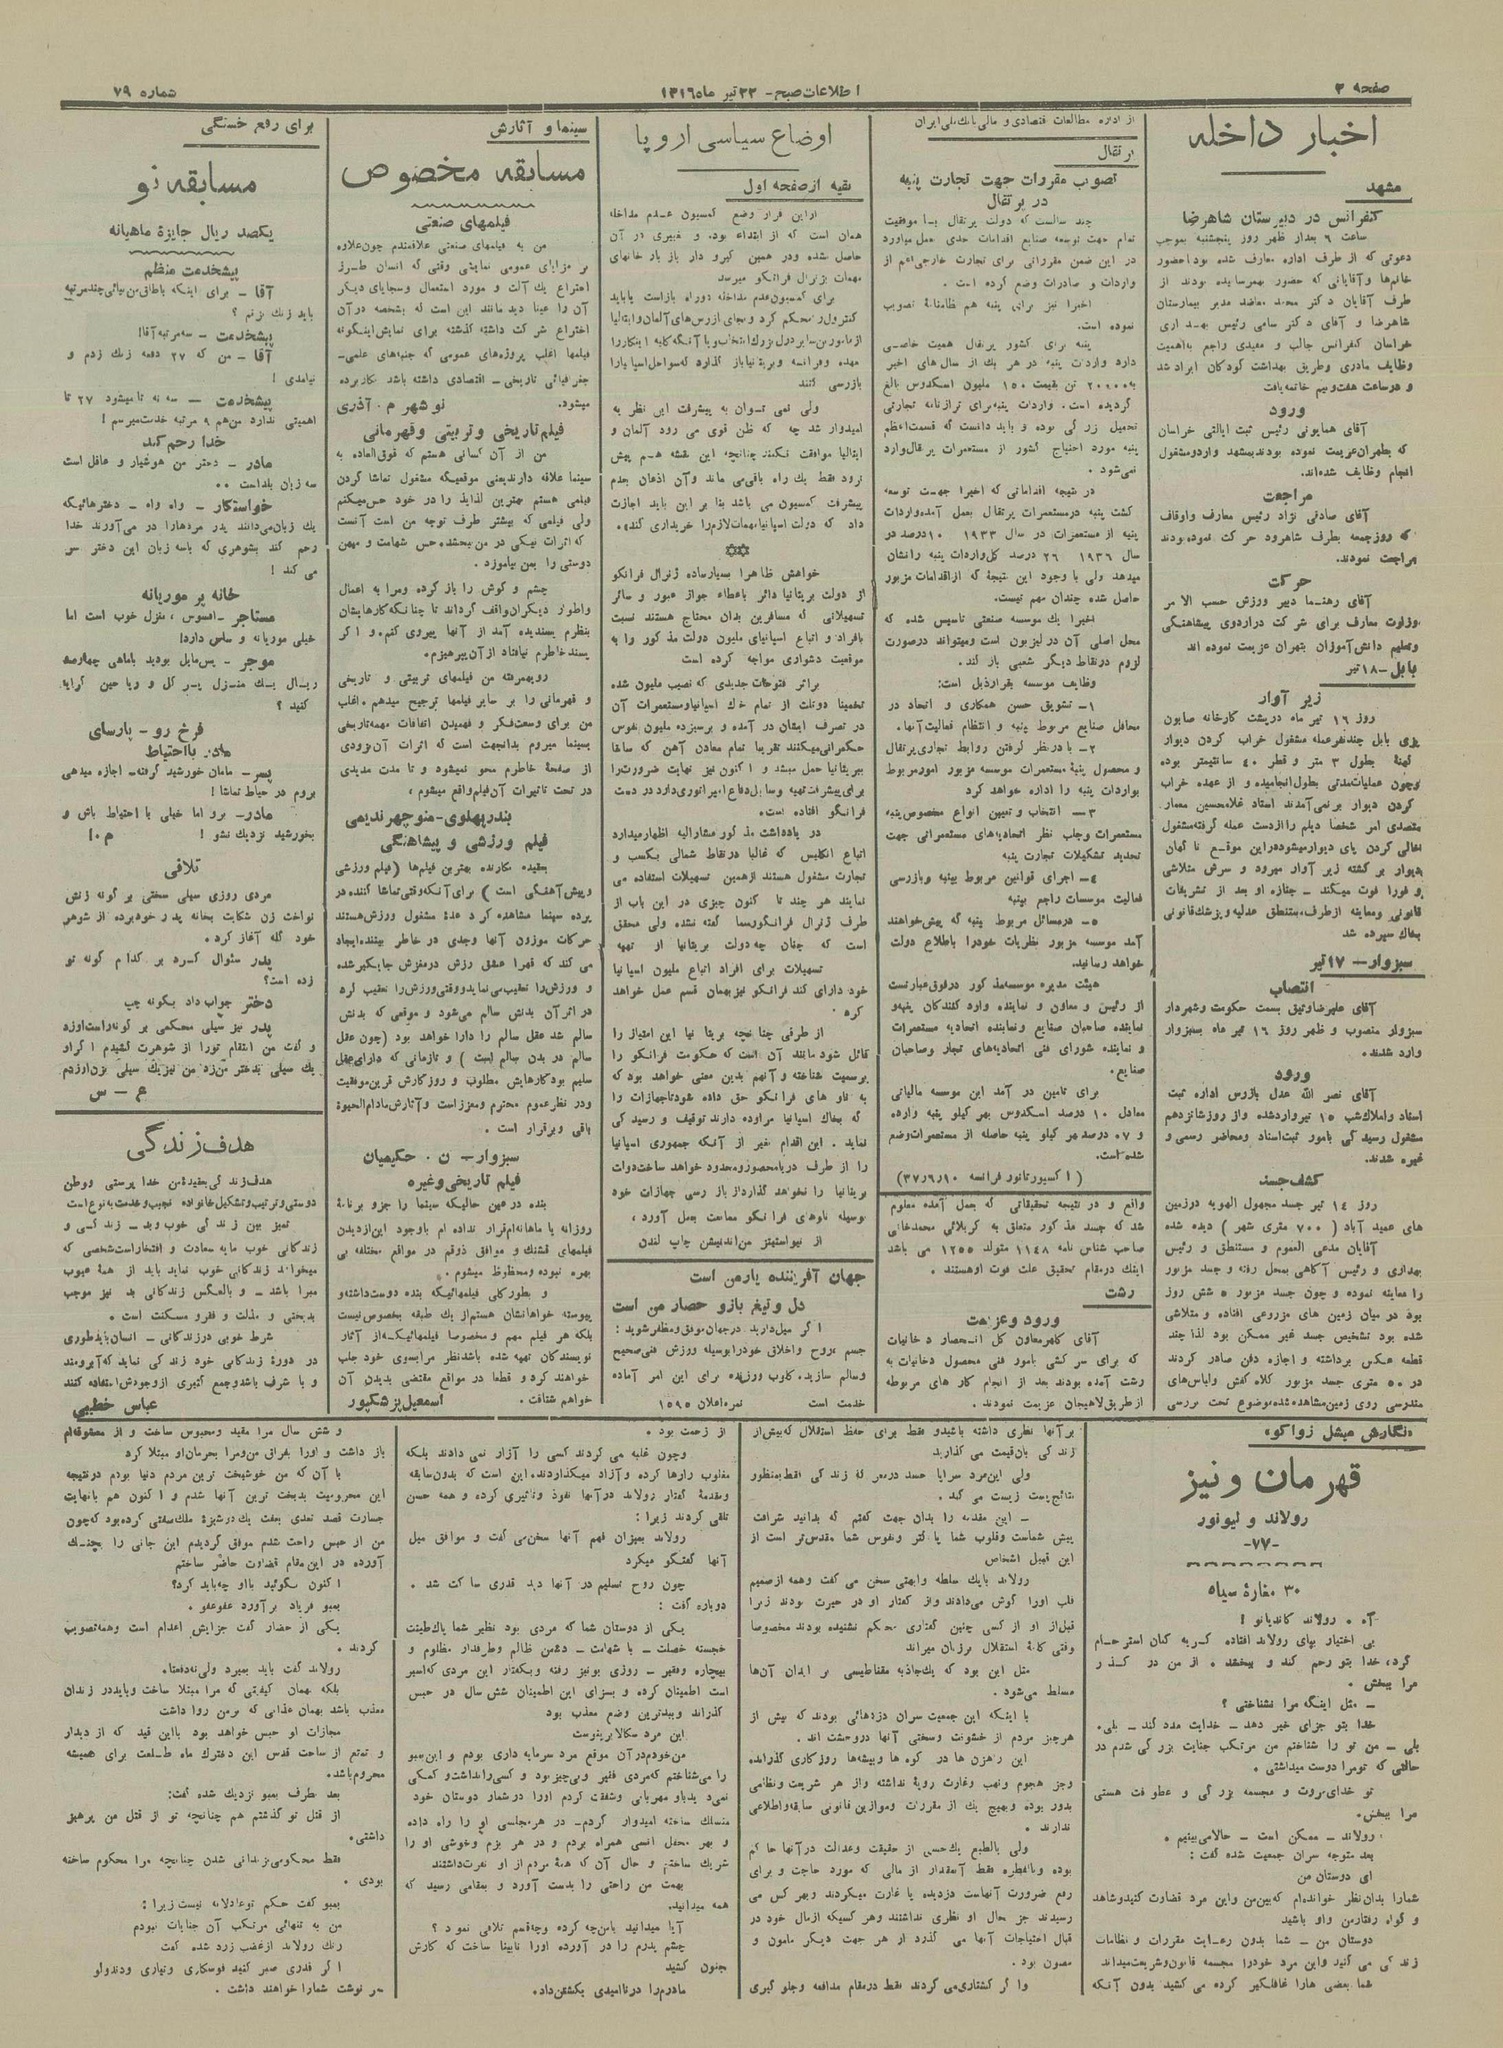 صفحه ۲
اطلاعات صبح - ۲۲ تیر ماه ۱۳۱۶
شماره ۷۹
اخبار داخله
مشهد
کنفرانس در دبیرستان شاهرضا
ساعت ۶ بعداز ظهر روز پنجشنبه بموجب
دعوتی که از طرف اداره معارف شده بود با حضور
خانم‌ها و آقایانی که حضور بهمرسانیده بودند از
طرف آقایان دکتر محمد معاضد مدیر بیمارستان
شاهرضا و آقای دکتر سامی رئیس بهداری
خراسان کنفرانس جالب و مفیدی راجع به اهمیت
وظایف مادری و طریق بهداشت کودکان ایراد شد
و در ساعت هفت و نیم خاتمه یافت
ورود
آقای همایونی رئیس ثبت ایالتی خراسان
که بطهران عزیمت نموده بودند بمشهد وارد و مشغول
انجام وظایف شده‌اند.
مراجعت
آقای صادقی نژاد رئیس معارف و اوقاف
که روز جمعه بطرف شاهرود حرکت نموده بودند
مراجعت نمودند.
حرکت
آقای رهنما دبیر ورزش حسب الامر
وزارت معارف برای شرکت در اردوی پیشاهنگی
و تعلیم دانش‌آموزان بتهران عزیمت نموده اند
بابل - ۱۸ تیر
زیر آوار
روز ۱۶ تیر ماه در پشت کارخانه صابون
پزی بابل چند نفر عمله مشغول خراب کردن دیوار
کهنهٔ بطول ۳ متر و قطر ۴۰ سانتیمتر بوده
و چون عملیات مدتی بطول انجامیده و از عهده خراب
کردن دیوار برنمی‌آمدند استاد غلامحسین معمار
متصدی امر شخصا دیلم را از دست عمله گرفته مشغول
خالی کردن پای دیوار میشود در این موقع ناگهان
دیوار برگشته زیر آوار میرود و سرش متلاشی
و فورا فوت میکند - جنازه او بعد از تشریفات
قانونی و معاینه از طرف مستنطق عدلیه و پزشک قانونی
بخاک سپرده شد
سبزوار - ۱۷ تیر
انتصاب
آقای علیرضا وثیق بسمت حکومت و شهردار
سبزوار منصوب و ظهر روز ۱۶ تیر ماه بسبزوار
وارد شدند.
ورود
آقای نصر الله عدل بازرس اداره ثبت
اسناد و املاک شب ۱۵ تیر وارد شده و از روز شانزدهم
مشغول رسیدگی بامور ثبت اسناد و محاضر رسمی و
غیره شدند.
کشف جسد
روز ۱۴ تیر جسد مجهول الهویه در زمین
های عمید آباد (۷۰۰ متری شهر) دیده شده
آقایان مدعی العموم و مستنطق و رئیس
بهداری و رئیس آگاهی بمحل رفته و جسد مزبور
را معاینه نموده و چون جسد مزبور ۵ شش روز
بود در میان زمین های مزروعی افتاده و متلاشی
شده بود تشخیص جسد غیر ممکن بود لذا چند
قطعه عکس برداشته و اجازه دفن صادر کردند
در ۵۰ متری جسد مزبور کلاه کفش و لباس‌های
مندرسی روی زمین مشاهده شده موضوع تحت بررسی
از اداره مطالعات قتصادی و مالی بانک ملی ایران
پرتقال
تصویب مقررات جهت تجارت پنبه
در پرتقال
چند سالست که دولت پرتقال بنا موفقیت
تمام جهت توسعه صنایع اقدامات جدی بعمل میاورد
در این ضمن مقرراتی برای تجارت خارجی اعم از
واردات و صادرات وضع کرده است.
اخیرا نیز برای پنبه هم نظامنامهٔ تصویب
نموده است.
پنبه برای کشور پرتقال اهمیت خاصی
دارد واردات پنبه در هر یک از سال های اخیر
به ۲۰۰۰۰ تن بقیمت ۱۵۰ ملیون اسکدوس بالغ
گردیده است. واردات پنبه برای ترازنامه تجارتی
تحمیل بزرگی بوده و باید دانست که قسمت اعظم
پنبه مورد احتیاج کشور از مستعمرات پرتقال وارد
نمی‌شود.
در نتیجه اقداماتی که اخیرا جهت توسعه
کشت پنبه در مستعمرات پرتقال بعمل آمده واردات
پنبه از مستعمرات در سال ۱۹۳۳ ۱۰ درصد در
سال ۱۹۳۶ ۲۶ درصد کل واردات پنبه را نشان
میدهد ولی با وجود این نتیجهٔ که از اقدامات مزبور
حاصل شده چندان مهم نیست.
اخیرا یک موسسه صنعتی تاسیس شده که
محل اصلی آن در لیزبون است و میتواند در صورت
لزوم در نقاط دیگر شعبی باز کند.
وظایف موسسه بقرار ذیل است:
۱- تشویق حسن همکاری و اتحاد در
محافل صنایع مربوط پنبه و انتظام فعالیت آنها.
۲- با در نظر گرفتن روابط تجاری پرتقال
و محصول پنبهٔ مستعمرات موسسه مزبور امور مربوط
بواردات پنبه را اداره خواهد کرد
۳- انتخاب و تعیین انواع مخصوص پنبه
مستعمرات و جلب نظر اتحادیه‌های مستعمراتی جهت
تجدید تشکیلات تجارت پنبه
۴- اجرای قوانین مربوط بپنبه و بازرسی
فعالیت موسسات راجع بپنبه
۵- در مسائل مربوط پنبه که پیش خواهند
آمد موسسه مزبور نظریات خود را باطلاع دولت
خواهد رسانید.
هیئت مدیره موسسه مذکور در فوق عبارتست
از رئیس و معاون و نماینده وارد کنندگان پنبه و
نماینده صاحبان صنایع و نماینده اتحادیه مستعمرات
و نماینده شورای فنی اتحادیه‌های تجار و صاحبان
صنایع.
برای تامین در آمد این موسسه مالیاتی
معادل ۱۰ درصد اسکدوس بهر کیلو پنبه وارده
و ۰۷ درصد هر کیلو پنبه حاصله از مستعمرات وضع
شده است.
(اکسپورتاتور فرانسه ۳۷/۶/۱۰)
واقع و در نتیجه تحقیقاتی که بعمل آمده معلوم
شد که جسد مذکور متعلق به کربلائی محمدخانی
صاحب شناس نامه ۱۱۴۸ متولد ۱۲۵۵ می باشد
اینک در مقام تحقیق علت فوت او هستند.
رشت
ورود و عزیمت
آقای کلهر معاون کل انحصار دخانیات
که برای سرکشی بامور فنی محصول دخانیات به
رشت آمده بودند بعد از انجام کار های مربوطه
از طریق لاهیجان عزیمت نمودند.
اوضاع سیاسی اروپا
بقیه از صفحه اول
از این قرار وضع کمسیون عدم مداخله
همان است که از ابتداء بود. و تغییری در آن
حاصل شده و در همین گیرو دار باز بار خانهای
مهمات بژنرال فرانکو میرسد
برای کمسیون عدم مداخله دوراه بازاست یا باید
کنترول را محکم کرد و بجای بازرس‌های آلمان و ایتالیا
از مامورین سایر دول بزرگ انتخاب و یا آنکه کلیه اینکار را
بعهده و فرانسه و بریتانیا باز گذارد که سواحل اسپانیا را
بازرسی کنند
ولی نمی توان به پیشرفت این نظر به
امیدوار شد چه که ظن قوی می رود آلمان و
ایتالیا موافقت نکنند چنانچه این نقشه هم پیش
نرود فقط یک راه باقی می ماند و آن اذعان بعدم
پیشرفت کمسیون می باشد بنا بر این باید اجازت
داد که دولت اسپانیا مهمات لازم را خریداری کند.
خواهش ظاهرا بسیار ساده ژنرال فرانکو
از دولت بریتانیا دائر باعطاء جواز عبور و سائر
تسهیلاتی که مسافرین بدان محتاج هستند نسبت
بافراد و اتباع اسپانیای ملیون دولت مذکور را به
موقعیت دشواری مواجه کرده است
براثر فتوحات جدیدی که نصیب ملیون شده
تخمینا دوثلث از تمام خاک اسپانیا و مستعمرات آن
در تصرف ایشان در آمده و بر سیزده ملیون نفوس
حکمرانی میکنند تقریبا تمام معادن آهن که سابقا
ببریتانیا حمل میشد و اکنون نیز نهایت ضرورت را
برای پیشرفت تهیه وسایل دفاع امپراتوری دارد در دست
فرانکو افتاده است.
در یادداشت مذکور مشارالیه اظهار میدارد
اتباع انگلیس که غالبا در نقاط شمالی بکسب و
تجارت مشغول هستند از همین تسهیلات استفاده می
نمایند هر چند تا کنون چیزی در این باب از
طرف ژنرال فرانکو رسما گفته نشده ولی محقق
است که چنان چه دولت بریتانیا از تهیه
تسهیلات برای افراد اتباع ملیون اسپانیا
خود داری کند فرانکو نیز بهمان قسم عمل خواهد
کرد.
از طرفی چنانچه بریتانیا این امتیاز را
قائل شود مانند آن است که حکومت فرانکو را
برسمیت شناخته و آنهم بدین معنی خواهد بود که
به ناو های فرانکو حق داده شود تا جهازات را
که بخاک اسپانیا مراوده دارند توقیف و رسیدگی
نماید. این اقدام غیر از آنکه جمهوری اسپانیا
را از طرف دریا محصور و محدود خواهد ساخت دولت
بریتانیا را نخواهد گذارد از باز رسی جهازات خود
بوسیله ناوهای فرانکو ممانعت بعمل آورد.
از نیواستیتز من اندنیشن چاپ لندن
جهان آفریننده یار من است
دل و تیغ بازو حصار من است
اگر میل دارید در جهان موفق و مظفر شوید:
جسم و روح و اخلاق خود را بوسیله ورزش فنی صحیح
و سالم سازید. کلوب ورزنده برای این امر آماده
خدمت است نمره اعلان ۱۵۹۵
سینما و آثارش
مسابقه مخصوص
فیلمهای صنعتی
من به فیلمهای صنعتی علاقمندم چون علاوه
بر مزایای عمومی نمایشی وقتی که انسان طرز
اختراع یک آلت و مورد استعمال و سجایای دیگر
آن را عینا دید مانند این است که بشخصه در آن
اختراع شرکت داشته گذشته برای نمایش اینگونه
فیلمها اغلب پروژه‌های عمومی که جنبه‌های علمی -
جغرافیائی تاریخی - اقتصادی داشته باشد بکار برده
میشود. نوشهر م. آذری
فیلم تاریخی و تربیتی و قهرمانی
من از آن کسانی هستم که فوق العاده به
سینما علاقه دارند یعنی موقعیکه مشغول تماشا کردن
فیلمی هستم بهترین لذایذ را در خود حس میکنم
ولی فیلمی که بیشتر طرف توجه من است آنست
که اثرات نیکی در من ببخشد. حس شهامت و میهن
دوستی را بمن بیاموزد.
چشم و گوش را باز کرده و مرا به اعمال
واطوار دیگران واقف گرداند تا چنانکه کارهایشان
بنظرم پسندیده آمد از آنها پیروی کنم. و اگر
پسند خاطرم نیافتاد از آن بپرهیزم.
رویهمرفته من فیلمهای تربیتی و تاریخی
و قهرمانی را بر سایر فیلمها ترجیح میدهم. اغلب
من برای وسعت فکر و فهمیدن اتفاقات مهمه تاریخی
بسینما میروم بدانجهت است که اثرات آن بزودی
از صفحهٔ خاطرم محو نمیشود و تا مدت مدیدی
در تحت تاثیرات آن فیلم واقع میشوم.
بندر پهلوی - منوچهر ندیمی
فیلم ورزشی و پیشاهنگی
بعقیده نگارنده بهترین فیلم‌ها (فیلم ورزشی
و پیش آهنگی است) برای آنکه وقتی تماشا کننده در
پرده سینما مشاهده کرد عدهٔ مشغول ورزش هستند
حرکات موزون آنها وجدی در خاطر بیننده ایجاد
می کند که قهرا عشق ورزش در مغزش جایگیر شده
و ورزش را تعقیب می نماید و وقتی ورزش را تعقیب کرد
در اثر آن بدنش سالم می‌شود و موقعی که بدنش
سالم شد عقل سالم را دارا خواهد بود (چون عقل
سالم در بدن سالم است) و تا زمانی که دارای عقل
سلیم بود کارهایش مطلوب و روز کارش قرین موفقیت
و در نظر عموم محترم و معزز است و آثارش مادام الحیوة
باقی و برقرار است.
سبزوار - ن. حکیمیان
فیلم تاریخی و غیره
بنده در عین حالیکه سینما را جزو برنامهٔ
روزانه یا ماهانه‌ام قرار نداده ام باوجود این از دیدن
فیلمهای قشنگ و موافق ذوقم در مواقع مختلفه بی
بهره نبوده و محظوظ میشوم.
و بطور کلی فیلمهائیکه بنده دوست داشته و
پیوسته خواهانشان هستم از یک طبقه بخصوص نیست
بلکه هر فیلم مهم و مخصوصا فیلمهائیکه از آثار
نویسندگان تهیه شده باشد نظر مرا بسوی خود جلب
خواهند کرد و قطعا در مواقع مقتضی بدیدن آن
خواهم شتافت. اسمعیل پزشکپور
برای رفع خستگی
مسابقه نو
یکصد ریال جایزهٔ ماهیانه
پیشخدمت منظم
آقا - برای اینکه باطاق من بیائی چند مرتبه
باید زنگ بزنم؟
پیشخدمت - سه مرتبه آقا!
آقا - من که ۲۷ دفعه زنگ زدم و
نیامدی!
پیشخدمت - سه نه تا میشود ۲۷ تا
اهمیتی ندارد من هم ۹ مرتبه خدمت میرسم!
خدا رحم کند
مادر - دختر من هوشیار و عاقل است
سه زبان بلداست..
خواستگار - واه واه - دخترهائیکه
یک زبان می‌دانند پدر مردها را در می‌آورند خدا
رحم کند بشوهری که باسه زبان این دختر سر
می کند!
خانه پر موریانه
مستاجر - افسوس، منزل خوب است اما
خیلی موریانه و ساس دارد!
موجر - پس مایل بودید با ماهی چهارصد
ریال یک منزل پر گل و ریاحین کرایه
کنید؟
فرخ رو - پارسای
مادر با احتیاط
پسر - مامان خورشید گرفته - اجازه میدهی
بروم در حیاط تماشا!
مادر - برو اما خیلی با احتیاط باش و
بخورشید نزدیک نشو! م. ا
تلافی
مردی روزی سیلی سختی بر گونه زنش
نواخت زن شکایت بخانه پدر خود برده از شوهر
خود گله آغاز کرد.
پدر سئوال کرد بر کدام گونه تو
زده است؟
دختر جواب داد بگونه چپ
پدر نیز سیلی محکمی بر گونه راست او زد
و گفت من انتقام تورا از شوهرت کشیدم اگر او
یک سیلی بدختر من زد من نیز یک سیلی بزن او زدم
ع - س
هدف زندگی
هدف زندگی بعقیدهٔ من خدا پرستی و وطن
دوستی و ترتیب و تشکیل خانواده نجیب و خدمت به نوع است
تمیز بین زندگی خوب و بد - زندگی و
زندگانی خوب مایه سعادت و افتخار است شخصی که
میخواهد زندگانی خوب نماید باید از همهٔ عیوب
مبرا باشد - و بالعکس زندگانی بد نیز موجب
بدبختی و مذلت و فقر و مسکنت است.
شرط خوبی در زندگانی - انسان باید طوری
در دورهٔ زندگانی خود زندگی نماید که آبرومند
و با شرف باشد و جمع کثیری از وجودش استفاده کنند
عباس خطیبی
«نگارش میشل زواکو»
قهرمان ونیز
رولاند و لیونور
-۷۷-
۳۰ مغارهٔ سیاه
آه. رولاند کاندیانو!
بی اختیار بپای رولاند افتاده گریه کنان استرحام
کرد، خدا بتو رحم کند و ببخشد. از من در گذر
مرا ببخش.
- مثل اینکه مرا نشناختی؟
خدا بتو جزای خیر دهد - خدایت مدد کند - بلی.
بلی - من تو را شناختم من مرتکب جنایت بزرگی شدم در
حالتی که تو مرا دوست میداشتی.
تو خدای مروت و مجسمه بزرگی و عطوفت هستی
مرا ببخش.
رولاند - ممکن است - حالا می‌بینیم.
بعد متوجه سران جمعیت شده گفت:
ای دوستان من
شمارا بدان نظر خوانده‌ام که بین من و این مرد قضاوت کنید و شاهد
و گواه رفتار من و او باشید
دوستان من - شما بدون رعایت مقررات و نظامات
زندگی می کنید و این مرد خود را مجسمه قانون و شریعت میداند
شما بعضی هارا غافلگیر کرده می کشید بدون آنکه
برآنها نظری داشته باشید و فقط برای حفظ استقلال که بیش از
زندگی بآن قیمت می گذارید
ولی این مرد سراپا حسد در معرکهٔ زندگی فقط بمنظور
نتائج پست زیست می کند.
- این مقدمه را بدان جهت گفتم که بدانید شرافت
بیش شماست و قلوب شما پاکتر و نفوس شما مقدس‌تر است از
این قبیل اشخاص
رولاند بایک سلطه و ابهتی سخن می گفت و همه از صمیم
قلب اورا گوش می‌دادند و از گفتار او در حیرت بودند زیرا
قبل از او از کسی چنین گفتاری محکم نشنیده بودند مخصوصا
وقتی کلمهٔ استقلال بر زبان میراند
مثل این بود که یک جاذبه مقناطیسی بر ابدان آن‌ها
مسلط می‌شود.
با اینکه این جمعیت سران دزدهائی بودند که بیش از
هر چیز مردم از خشونت و سختی آنها در وحشت اند.
این راهزن ها در کوه ها و بیشه‌ها روزگاری گذرانده
و جز هجوم و نهب و غارت رویهٔ نداشته و از هر شریعت و نظامی
بدور بوده و بهیچ یک از مقررات و موازین قانونی سابقه و اطلاعی
ندارند.
ولی بالطبع یک حسی از حقیقت و عدالت در آنها حاکم
بوده و بالفطره فقط آنقدر از مالی که مورد حاجت و برای
رفع ضرورت آنهاست دزدیده یا غارت میکردند و بهر کس می
رسیدند جز بحال او نظری نداشتند و هر کسیکه از مال خود در
قبال احتیاجات آنها می گذرد از هر جهت دیگر مامون و
مصون بود.
واگر کشتاری می کردند فقط در مقام مدافعه و جلوگیری
از زحمت بود.
و چون غلبه می کردند کسی را آزار نمی دادند بلکه
مغلوب را رها کرده و آزاد میگذاردند. این است که بدون سابقه
و مقدمهٔ گفتار رولاند در آنها نفوذ و تاثیری کرده و همه حسن
تلقی کردند زیرا:
رولاند بمیزان فهم آنها سخن می گفت و موافق میل
آنها گفتگو میکرد
چون روح تسلیم در آنها دید قدری ساکت شد.
دوباره گفت:
یکی از دوستان شما که مردی بود نظیر شما پاک طینت
خجسته خصلت - با شهامت - دشمن ظالم و طرفدار مظلوم و
بیچاره و فقیر - روزی بونیز رفته و بگفتار این مردی که اسیر
است اطمینان کرده و بسزای این اطمینان شش سال در حبس
گذراند و ببدترین وضع معذب بود
این مرد سکالابرینوست
من خودم در آن موقع مرد سرمایه داری بودم و این بمبو
را می‌شناختم که مردی فقیر و بی‌چیز بود و کسی را نداشت و کمکی
نمی‌دید باو مهربانی و شفقت کردم اورا در شمار دوستان خود
منسلک ساخته امیدوار کردم - در هر مجلسی او را راه داده
و بهر محفل انسی همراه بردم و در هر بزم و خوشی او را
شریک ساختم و حال آن که همهٔ مردم از او نفرت داشتند
بهمت من راحتی را بدست آورد و بمقامی رسید که
همه میدانید.
آیا میدانید بامن چه کرده و چه قسم تلافی نمود؟
چشم پدرم را در آورده اورا نابینا ساخت که کارش
بجنون کشید
مادرم را در ناامیدی بکشتن داد.
و شش سال مرا مقید و محبوس ساخت و از معشوقه‌ام
باز داشت و اورا بفراق من و مرا بحرمان او مبتلا کرد
با آن که من خوشبخت ترین مردم دنیا بودم در نتیجه
این محرومیت بدبخت ترین آنها شدم و اکنون هم بانهایت
جسارت قصد تعدی بعفت یک دوشیزهٔ ملک صفتی کرده بود که چون
من از حبس راحت شدم موفق گردیدم این جانی را بچنگ
آورده در این مقام قضاوت حاضر ساختم
اکنون بگوئید بااو چه باید کرد؟
بمبو فریاد بر آورد عفو عفو.
یکی از حضار گفت جزایش اعدام است و همه تصویب
کردند.
رولاند گفت باید بمیرد ولی نه دفعتا.
بلکه بهمان کیفیتی که مرا مبتلا ساخت و باید در زندان
معذب باشد بهمان عذابی که برمن روا داشت
مجازات او حبس خواهد بود بااین قید که از دیدار
و تمتع از ساحت قدس این دخترک ماه طلعت برای همیشه
محروم باشد.
بعد بطرف بمبو نزدیک شده گفت:
از قتل تو گذشتم هم چنانچه تو از قتل من پرهیز
داشتی.
فقط محکومی بزندانی شدن چنانچه مرا محکوم ساخته
بودی.
بمبو گفت حکم تو عادلانه نیست زیرا:
من به تنهائی مرتکب آن جنایات نبودم
رنک رولاند از غضب زرد شده گفت
اگر قدری صبر کنید فوسکاری و تیاری و دندولو
سر نوشت شمارا خواهند داشت.